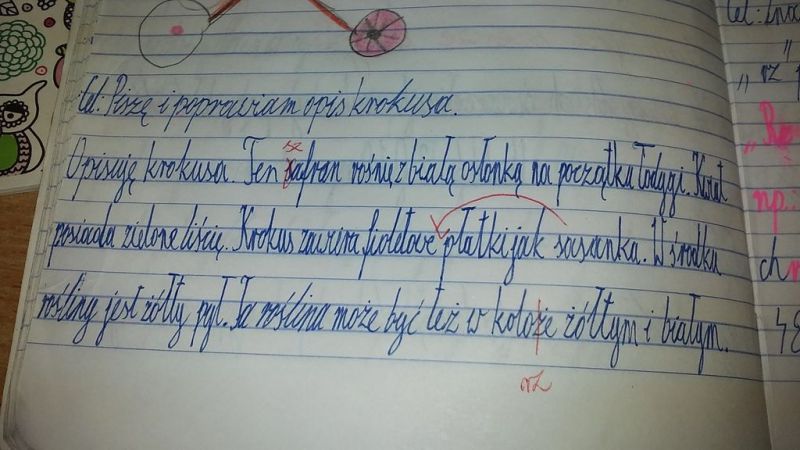 Cel: Piszę i poprawiam opis krokusa.
sz
Opisuję krokusa. Ten safran rośnię z białą osłonką na początku łodygi. Kwiat
posiada zielone liście. Krokus zawiera fioletowe płatki jak sasanka. W środku
rośliny jest żółty pył. Ta roślina może być też w koloże żółtym i białym.
rz
cel:
"rz
np.:
ch